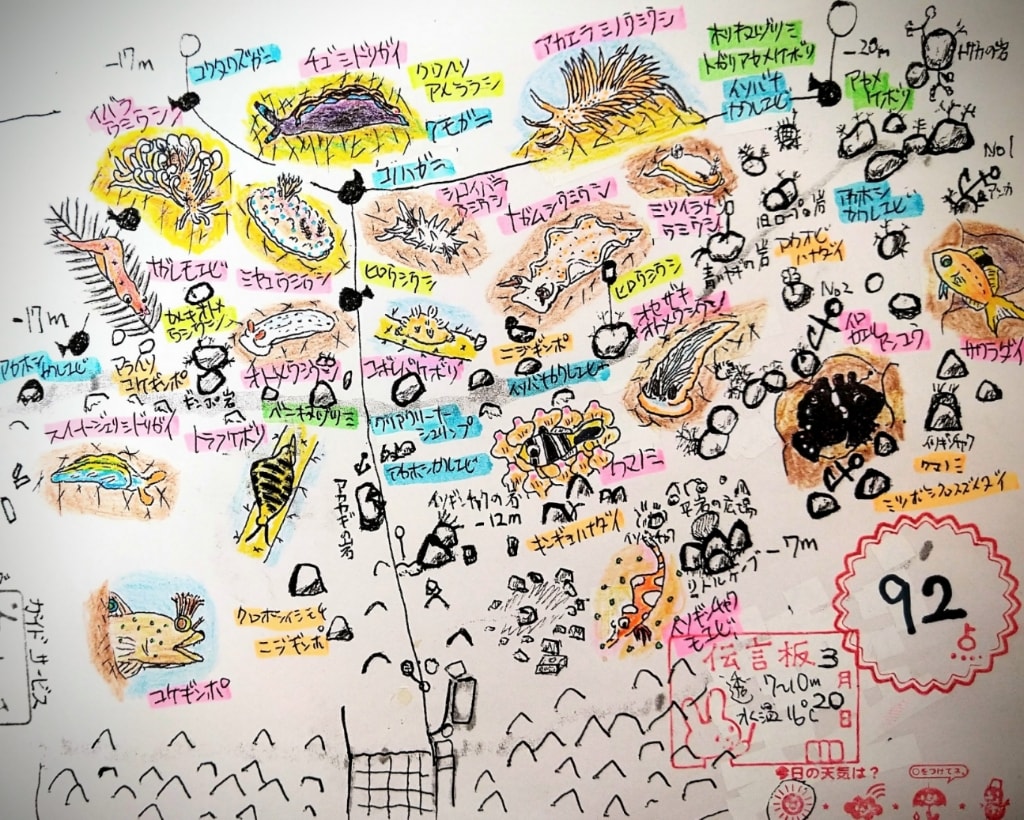 -17m
コワタクズガニ
チゴミドリガイ
クロヘリ
アメフラシ
クモガニ
アカエラミノウミウシ
ホリキヌヅツミ
トガリアヤメケボリ
イソバナ
カクレエビ
-20m
アヤメ
ケボリ
トサカの岩
イバラ
ウミウシ
コノハガニ
シロイバラ
ウミウシ
ナガムシウミウシ
ミツイラメリ
ウミウシ
旧ロープ岩
アカホシ
カクレエビ
No1
アンカ
ガレモエビ
ミヤコウミウシ
ヒロウミウシ
ヒロウミウシ
青ヤギの岩
アカオビ
ハナダイ
No2
サクラダイ
-17m
アカホシカクレエビ
アライソ
コケギンポ
ギンポ岩
オトメウミウシ
コボレバケボリ
ニジギンポ
イソバナカクレエビ
オセザキ
オトメウミウシ
イロ
カエルアンコウ
スイートジェリーミドリガイ
トラフケボリ
ベニキヌヅツミ
クリアクリーナー
シュリンプ
アカホシカクレエビ
クマノミ
イソギンチャク
クマノミ
ミツボシクロスズメダイ
アカヤギの岩
イソギンチャクの岩
-12m
キンギョハナダイ
イソギンチャク
平岩の広場
-7m
リトルケーブ
イソギンチャク
モエビ
コケギンポ
クロホシイシモチ
ニジギンポ
ガイドサービス
92
点
伝言板
3月
20日
透 7~10m
水温 16℃
今日の天気は?
○をつけてネ